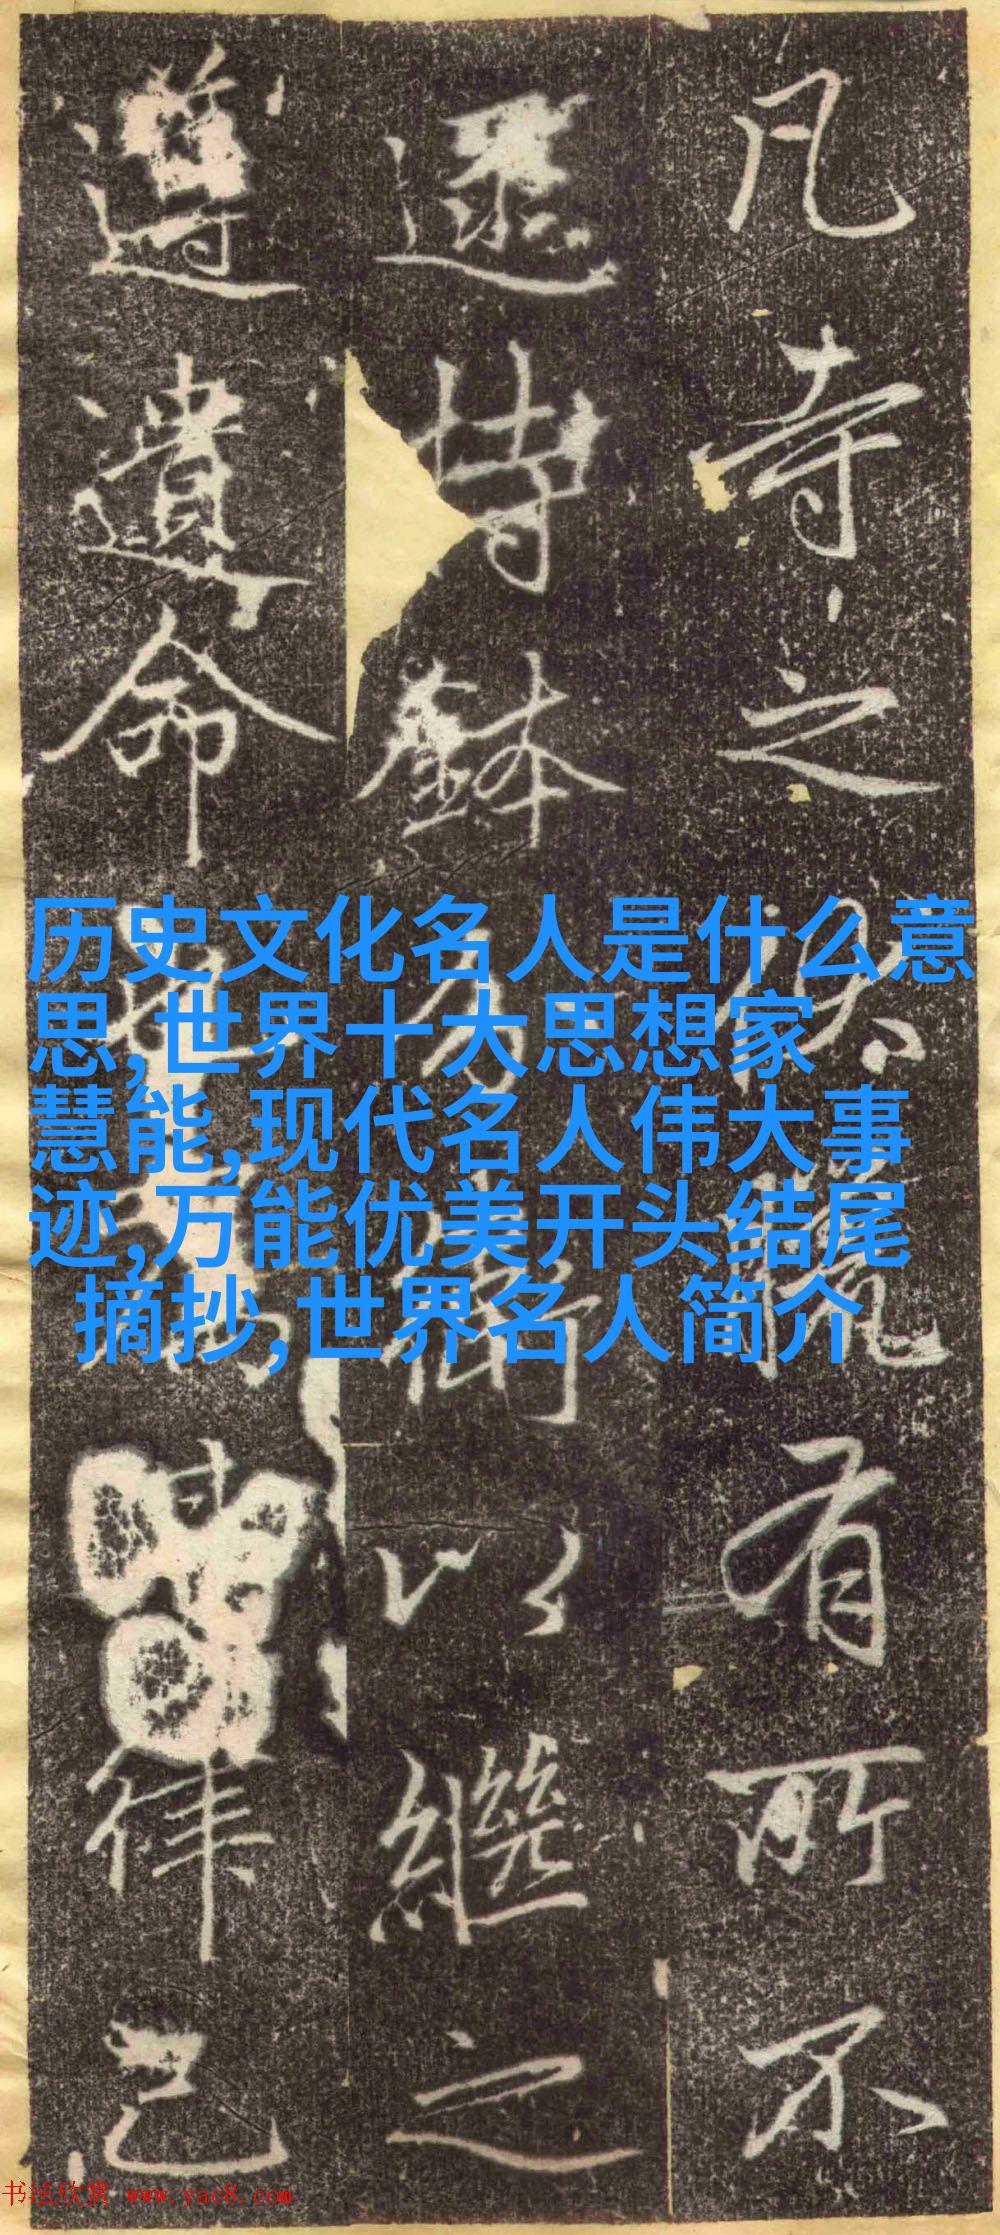 凡寺之有所不
持鉢以繼之
遵遺命律己
历史文化名人是什么意
思,世界十大思想家
慧能,现代名人伟大事
迹,万能优美开头结尾
摘抄,世界名人简介
书法欣赏 www.yac8.com